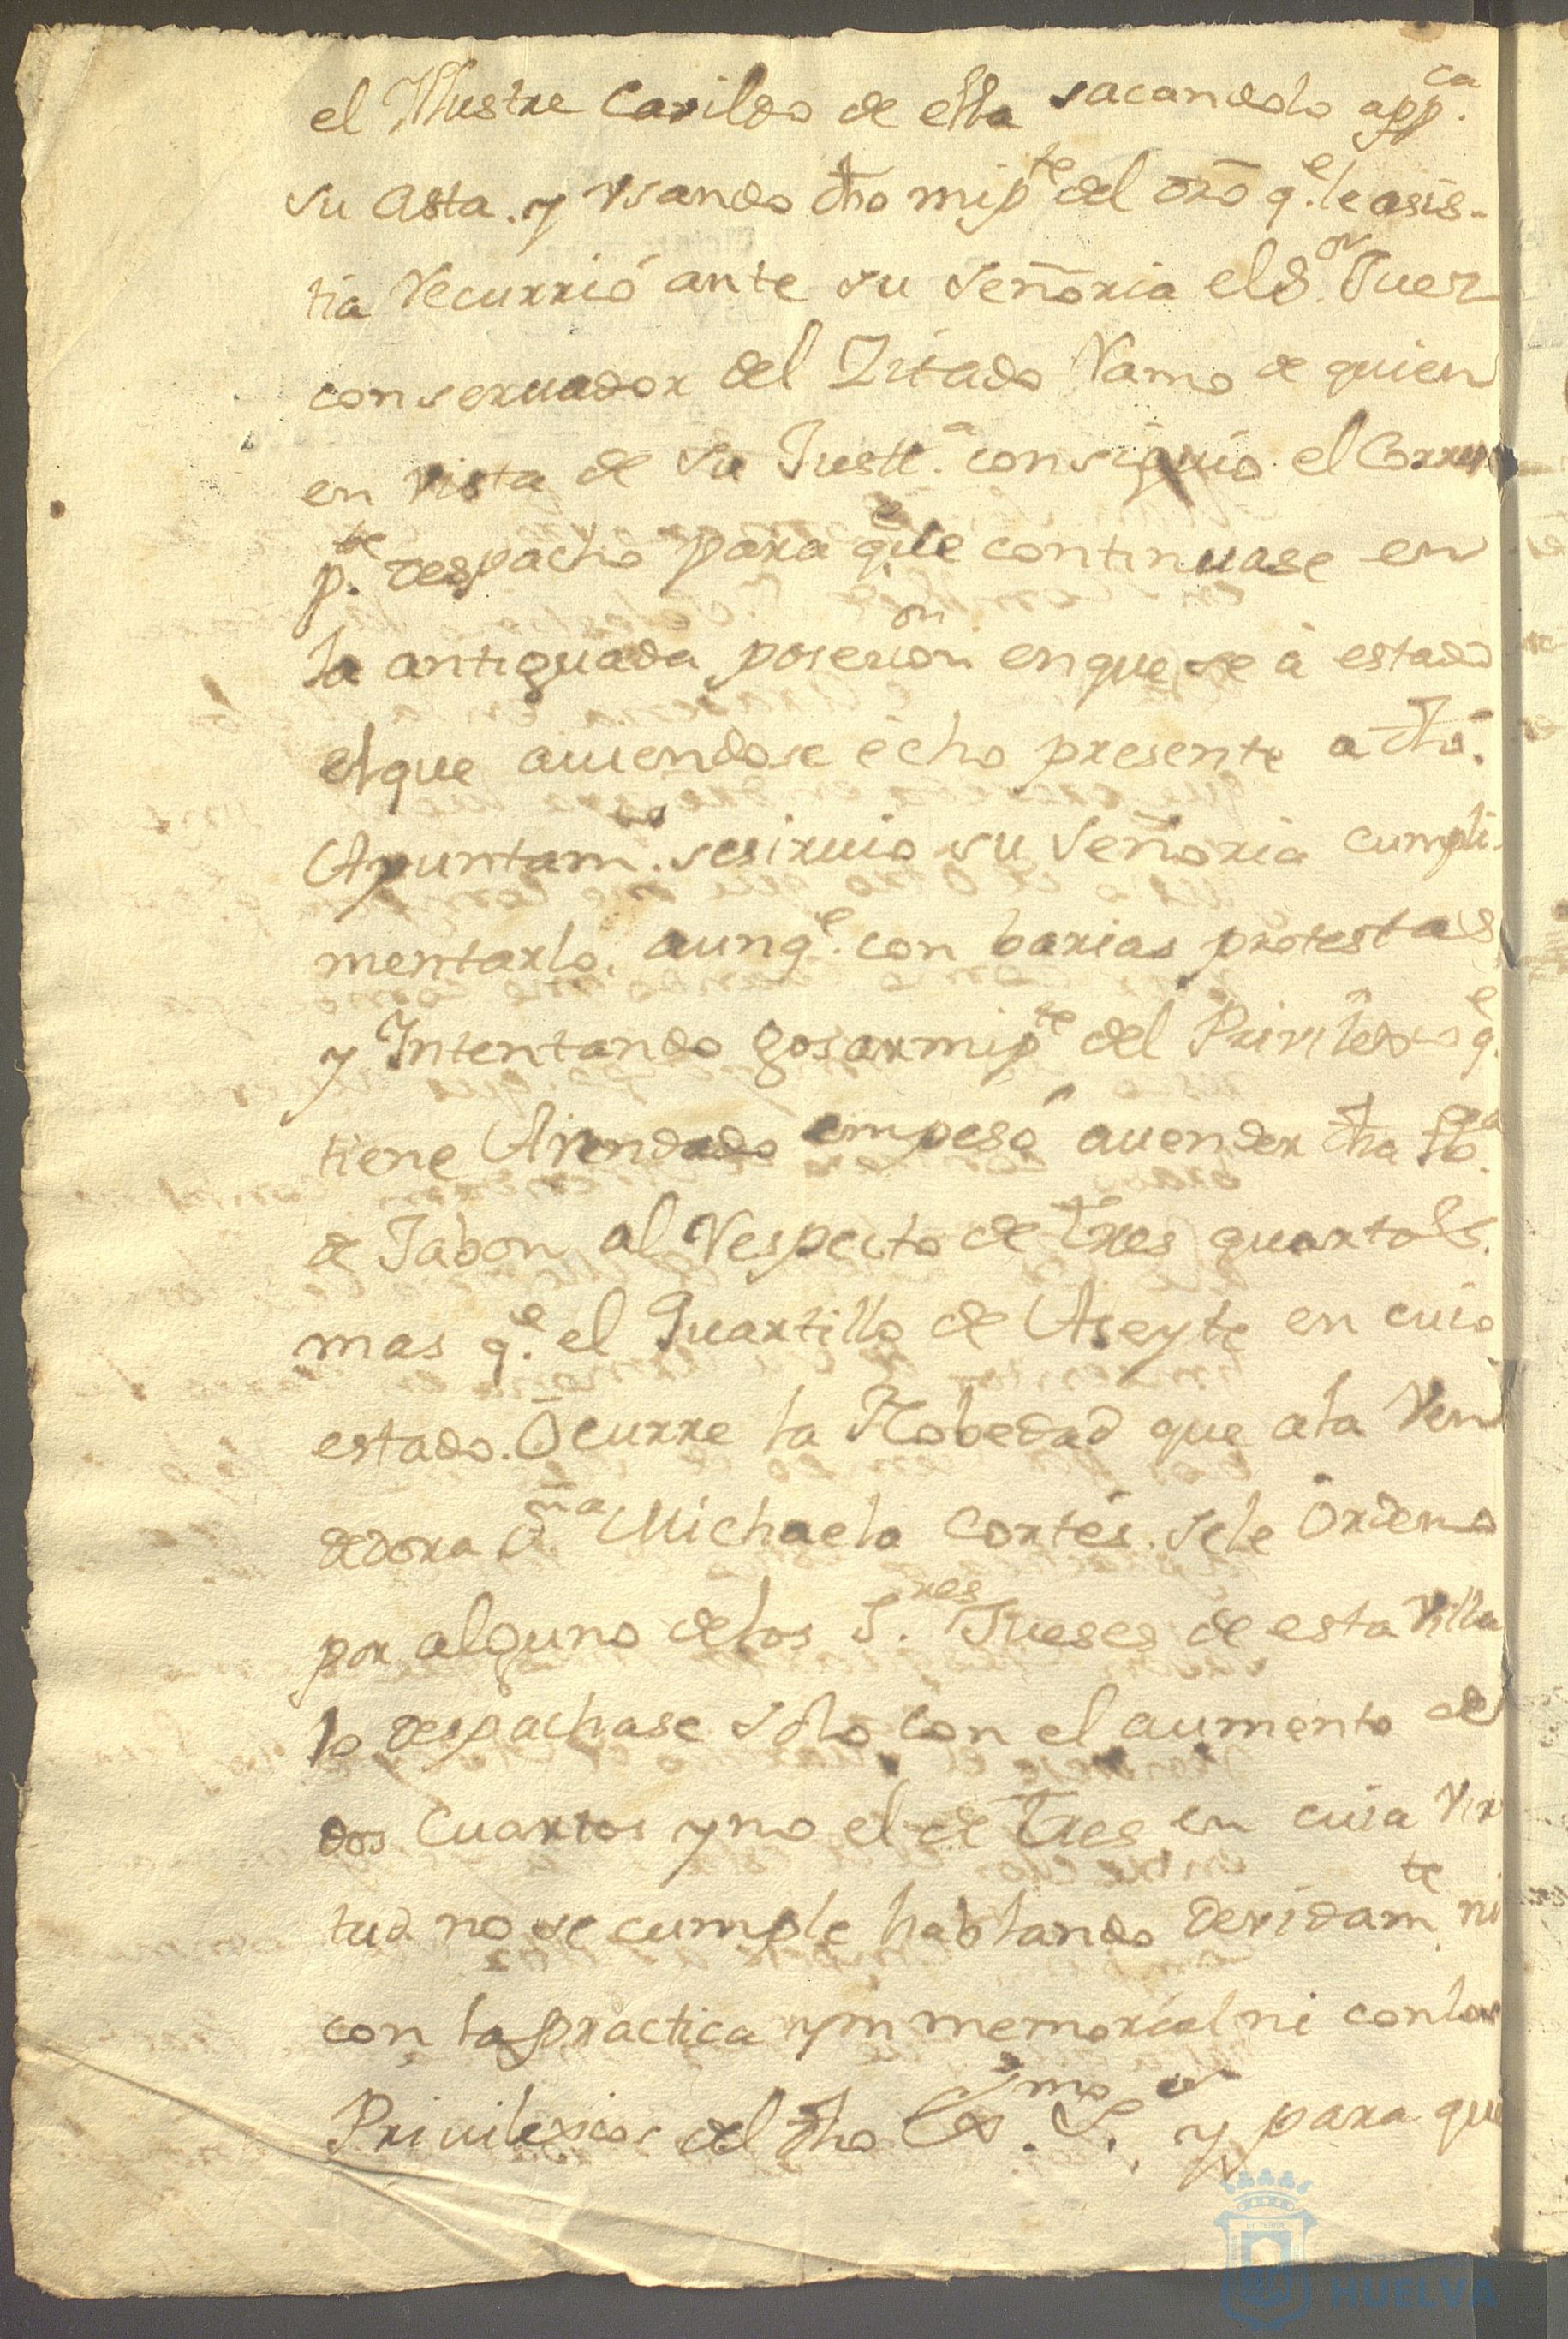 el Yllustre Cavildo de ella sacandolo a pp.ca
su Asta. y vsando dho mi p.te del dro q.e le asis-
tia Recurrió ante su Señoria el S.or Juez
conseruador del Zitado Ramo de quien
en vista de su Justt.a consiguio el Corres
p.te despacho para q.e le continuase en
la antiguada poseción en que se à estado
el que auiendose écho presente a dho.
Ayuntam.to se siruio su Señoria cumpli-
mentarlo, aunq.e con barias protestas
y Intentando gosar mi p.te del Privilexio q.e
tiene Arrendado empesó a uender dha lb.a
de Jabon al Respecto de tres quartos.
mas q.e el Quartillo de Aseyte en cuio
estado. Ocurre la Nobedad que a la Ven
dedora D.ña Michaela Cortés. se le Ordeno
por alguno de los S.res Jueses de esta Villa
lo despachase solo con el aumento de
dos Cuartos y no el de Tres en cuia vir
tud no se cumple hablando devidam.te ni
con la practica ynmemorial ni con los
Privilexios del dho Ex.mo S.or y para que
HUELVA